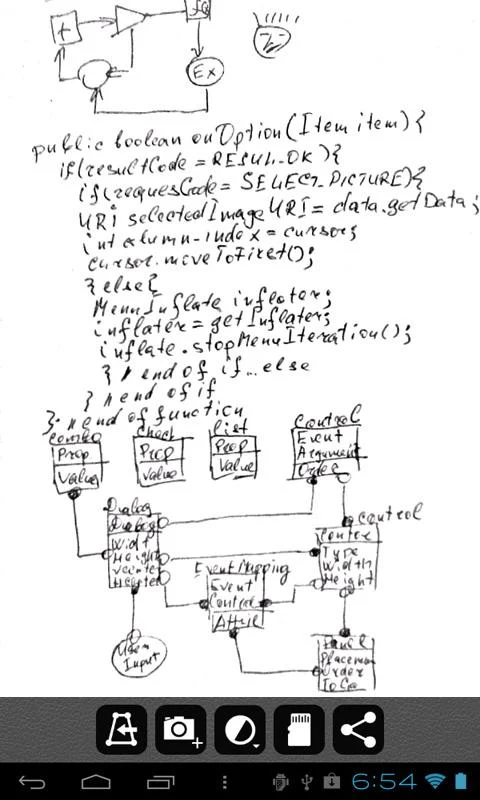 +
Ex
public boolean onOption(Item item){
if(resultCode = RESUL_OK){
if(requesCode = SELECT_PICTURE){
URi selectedImageURI = data.getData;
int column-index = cursor;
cursor.moveToFirst();
} else{
MenuInflate inflater;
inflater = getInflater;
inflate.stopMenuIteration();
} // end of if...else
} // end of if
}; // end of function
Combo
Prop
Value
Check
Prop
Value
List
Prop
Value
Control
Event
Argument
Order
Dialog
Dialog
Width
Height
Vcenter
Hcenter
Control
Type
Width
Height
Event Mapping
Event
Control
Attrib
User
Input
Panel
Placemen
Order
6:54